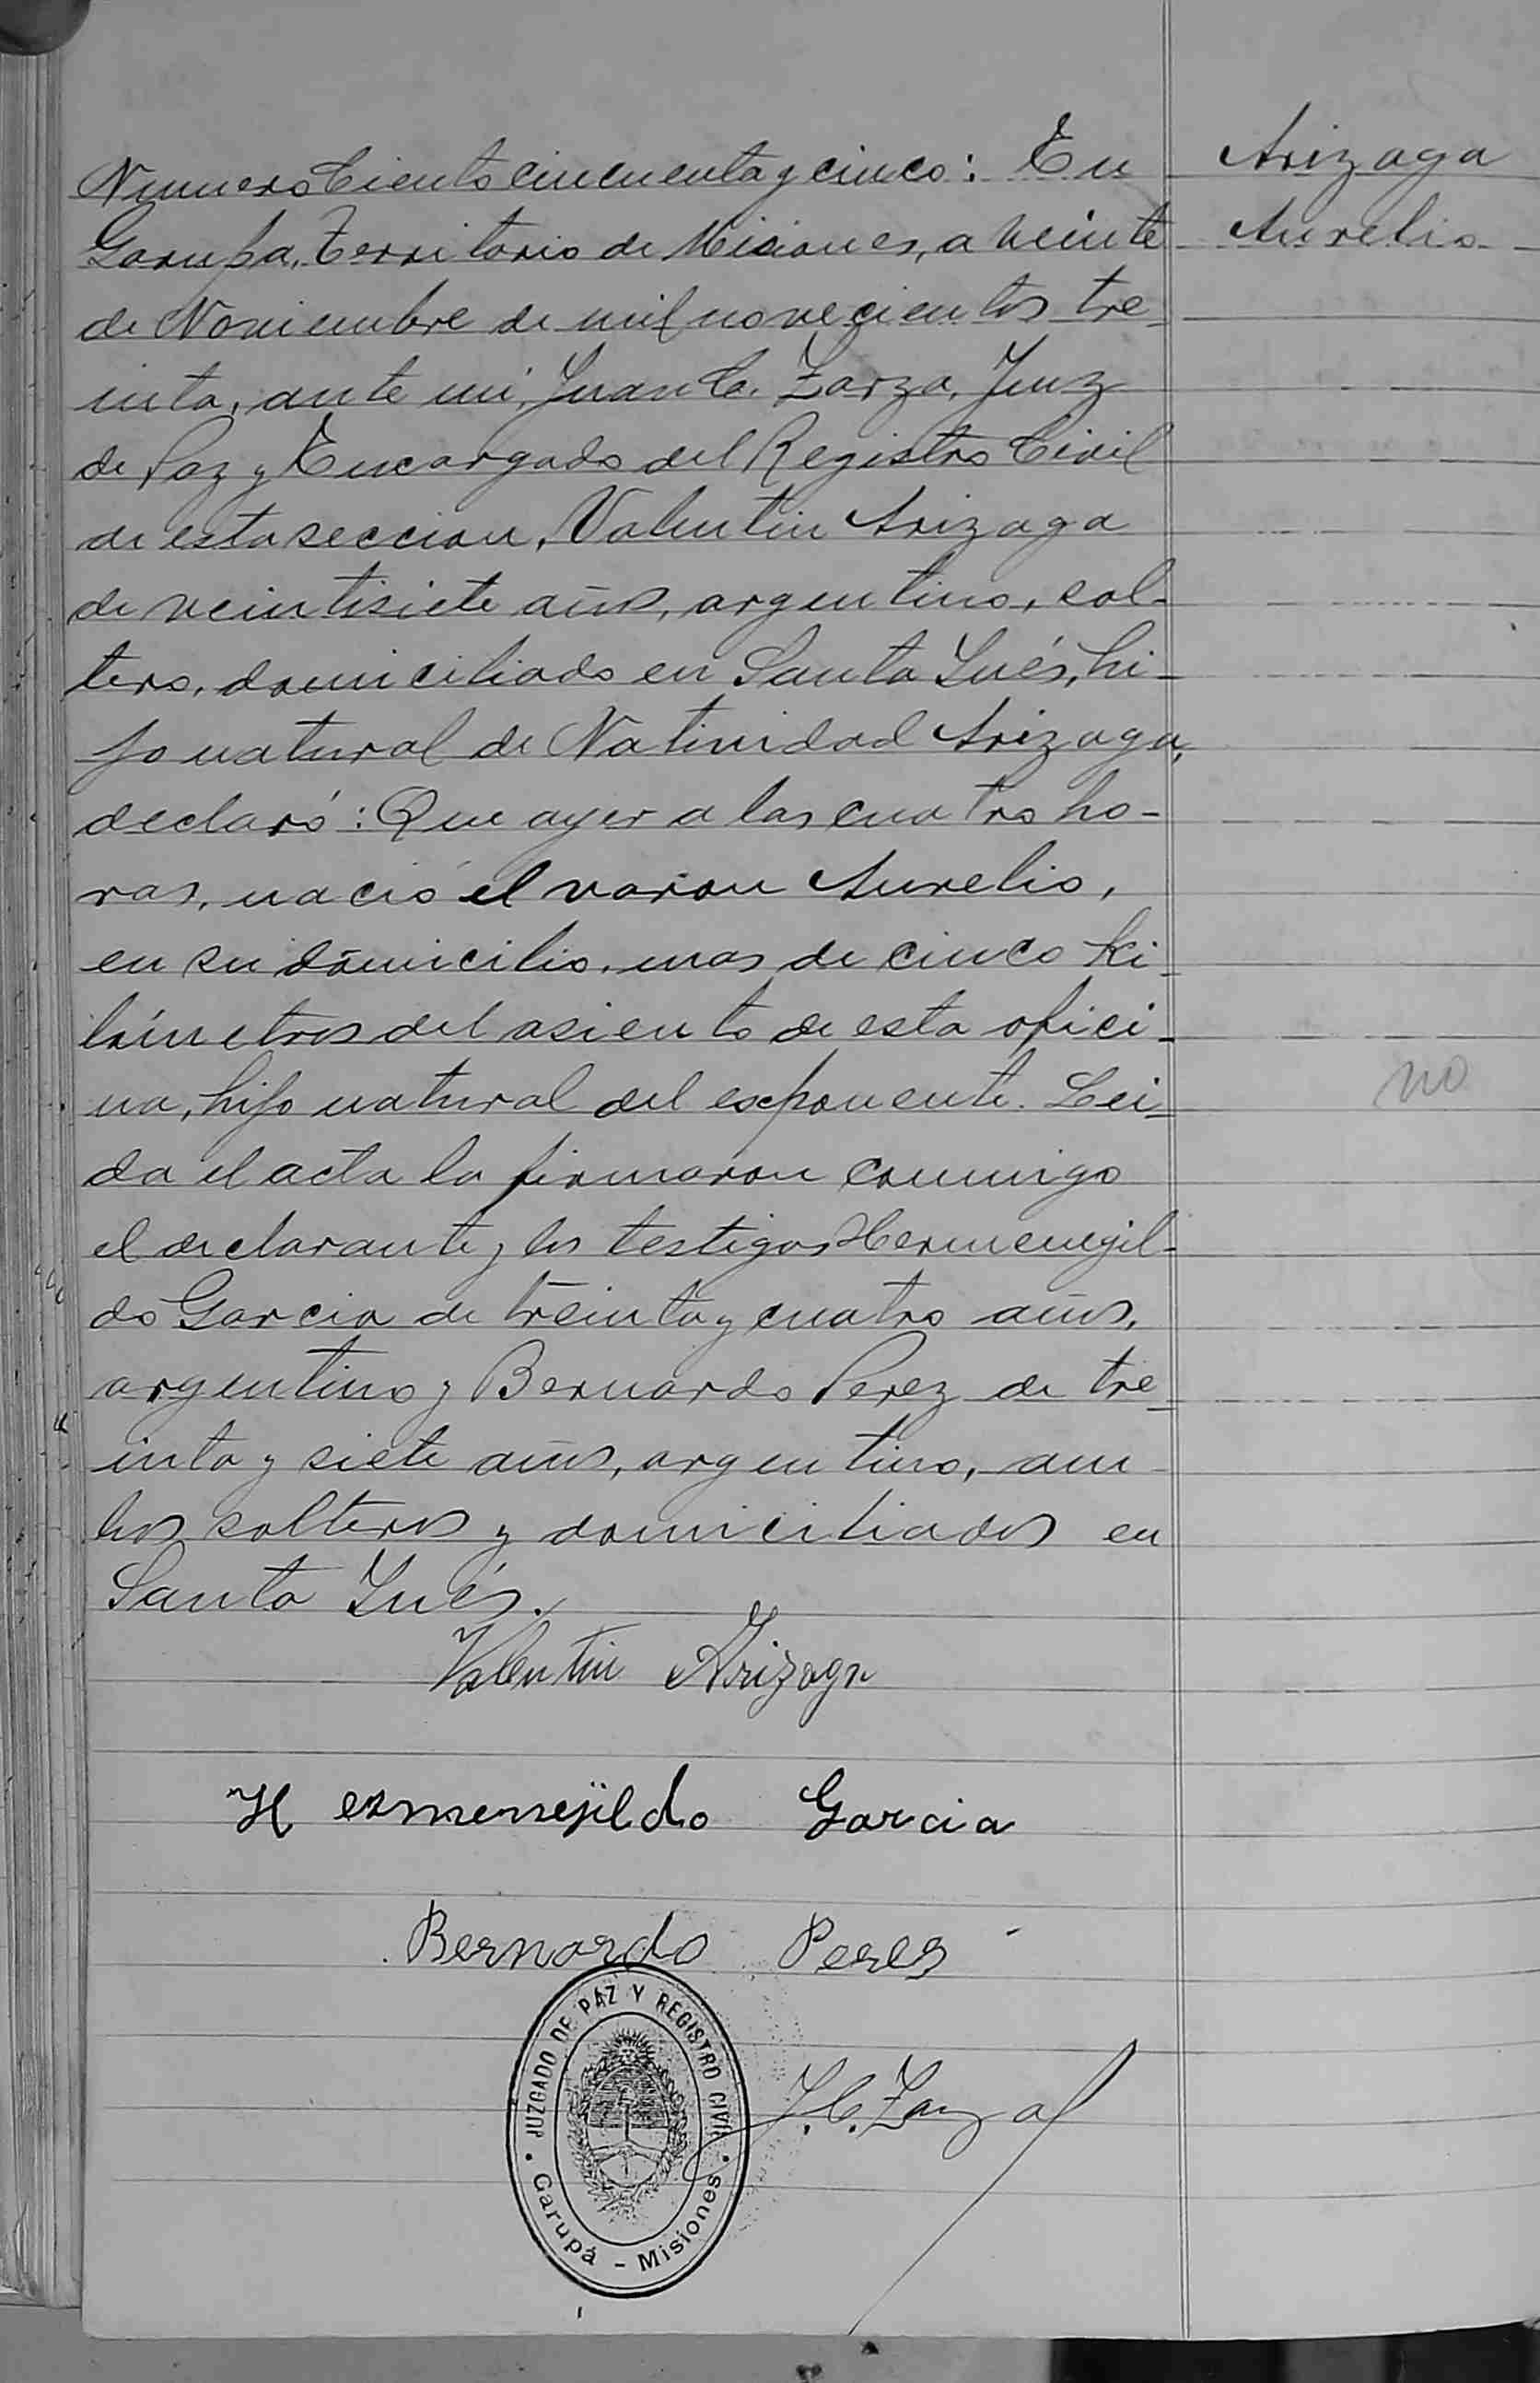 Arizaga
Aurelio
Numero Ciento cincuenta y cinco: En
Garupa, Territorio de Misiones, a veinte
de Noviembre de mil novecientos tre-
inta, ante mi, Juan C. Zarza, Juez
de Paz y Encargado del Registro Civil
de esta seccion, Valentin Arizaga
de veintisiete años, argentino, sol-
tero, domiciliado en Santa Inés, hi-
jo natural de Natividad Arizaga,
declaró: Que ayer a las cuatro ho-
ras, nació el varon Aurelio,
en su domicilio, mas de cinco ki-
lómetros del asiento de esta ofici-
na, hijo natural del exponente. Lei-
da el acta la firmaron conmigo
el declarante y los testigos Hermenegil-
do Garcia de treinta y cuatro años,
argentino y Bernardo Perez de tre-
inta y siete años, argentino, am-
bos solteros y domiciliados en
Santa Inés.
no
Valentin Arizaga
Hermenejildo Garcia
Bernardo Peres
J. C. Zarza
JUZGADO DE PAZ Y REGISTRO CIVIL
Garupá - Misiones